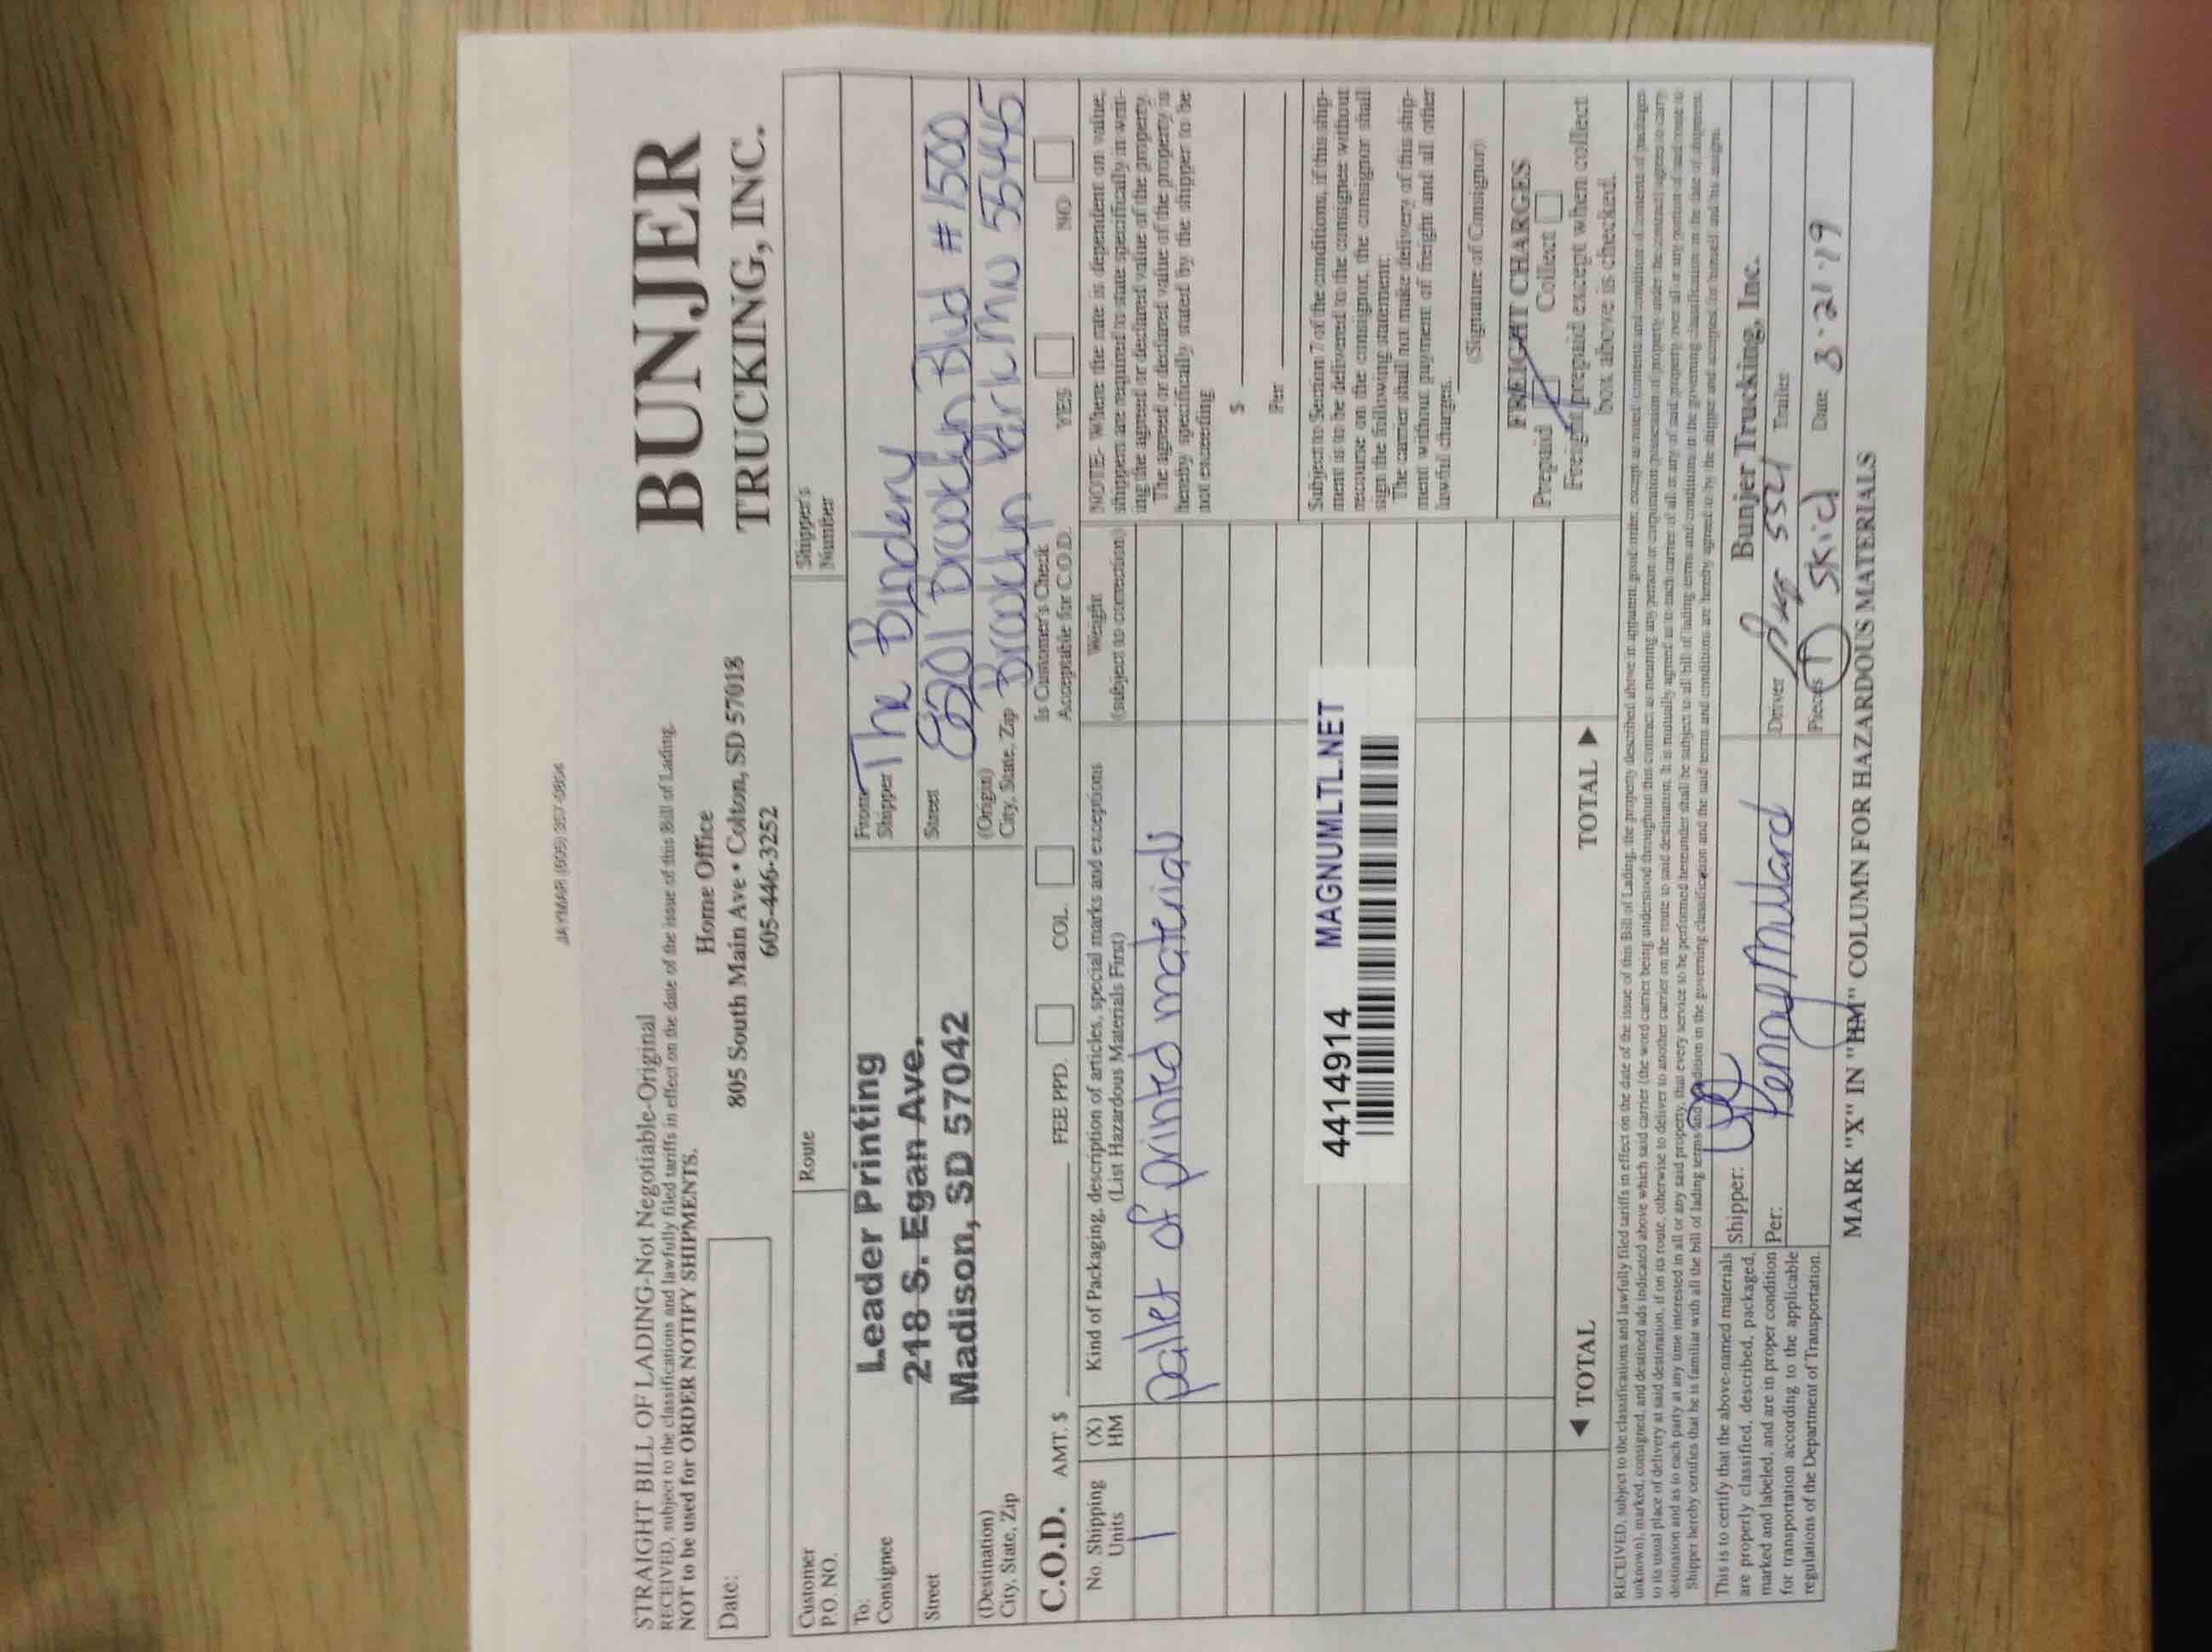 JAYMAR (605) 357-0864
STRAIGHT BILL OF LADING-Not Negotiable-Original
RECEIVED, subject to the classifications and lawfully filed tariffs in effect on the date of the issue of this Bill of Lading.
NOT to be used for ORDER NOTIFY SHIPMENTS.
BUNJER
TRUCKING, INC.
Home Office
805 South Main Ave • Colton, SD 57018
605-446-3252
Date:
Customer P.O. NO.
Route
Shipper's Number
To: Consignee Leader Printing
Street 218 S. Egan Ave.
(Destination) City, State, Zip Madison, SD 57042
From: Shipper The Bindery
Street 8201 Brooklyn Blvd #1500
(Origin) City, State, Zip Brooklyn Park MN 55445
C.O.D. AMT. $ FEE PPD. COL. Is Customer's Check Acceptable for C.O.D. YES NO
No. Shipping Units
(X) HM
Kind of Packaging, description of articles, special marks and exceptions
(List Hazardous Materials First)
Weight
(subject to correction)
1 pallet of printed materials
4414914 MAGNUMLTL.NET
NOTE- Where the rate is dependent on value,
shippers are required to state specifically in writ-
ing the agreed or declared value of the property.
The agreed or declared value of the property is
hereby specifically stated by the shipper to be
not exceeding
$
Per
Subject to Section 7 of the conditions, if this ship-
ment is to be delivered to the consignee without
recourse on the consignor, the consignor shall
sign the following statement:
The carrier shall not make delivery of this ship-
ment without payment of freight and all other
lawful charges.
(Signature of Consignor)
FREIGHT CHARGES
Prepaid Collect
Freight prepaid except when collect
box above is checked.
◄ TOTAL
TOTAL ►
RECEIVED, subject to the classifications and lawfully filed tariffs in effect on the date of the issue of this Bill of Lading, the property described above in apparent good order, except as noted (contents and condition of contents of packages
unknown), marked, consigned, and destined ads indicated above which said carrier (the word carrier being understood throughout this contract as meaning any person or corporation in possession of property under the contract) agrees to carry
to its usual place of delivery at said destination, if on its route, otherwise to deliver to another carrier on the route to said destination. It is mutually agreed as to each carrier of all or any of said property over all or any portion of said route to
destination and as to each party at any time interested in all or any said property, that every service to be performed hereunder shall be subject to all bill of lading terms and conditions in the governing classification on the date of shipment.
Shipper hereby certifies that he is familiar with all the bill of lading terms and condition in the governing classification and the said terms and conditions are hereby agreed to by the shipper and accepted for himself and his assigns.
This is to certify that the above-named materials
are properly classified, described, packaged,
marked and labeled, and are in proper condition
for transportation according to the applicable
regulations of the Department of Transportation.
Shipper:
Per: Penny Millard
Bunjer Trucking, Inc.
Driver 554 Trailer
Pieces 1 Skid Date 3-21-19
MARK "X" IN "HM" COLUMN FOR HAZARDOUS MATERIALS